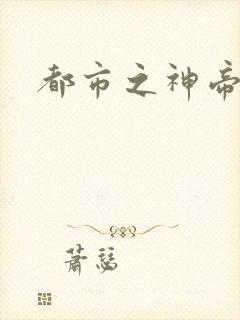 都市之神帝
萧瑟